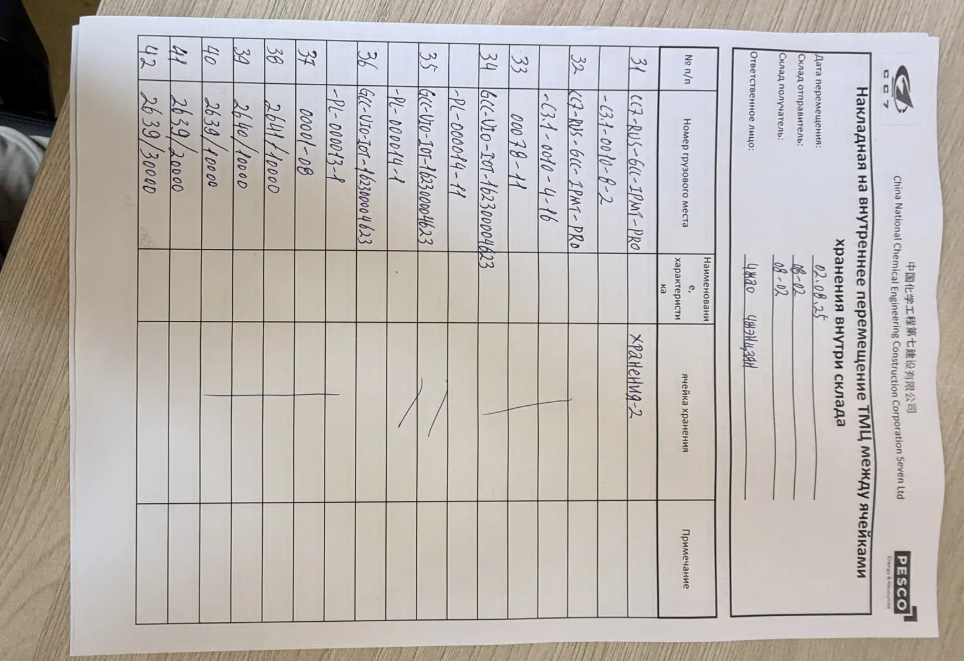 CC7
中国化学工程第七建设有限公司
China National Chemical Engineering Construction Corporation Seven Ltd
PESCO
Energy & Resources
Накладная на внутреннее перемещение ТМЦ между ячейками
хранения внутри склада
Дата перемещения: 02.08.25
Склад отправитель: 08-02
Склад получатель: 08-02
Ответственное лицо: ЧЖАО ЧЖЭНЦЗЯН
№ п/п Номер грузового места Наименование, характеристика ячейка хранения Примечание
31 CC7-RUS-GCC-IPMT-PRO хранения-2
-C3.1-0010-8-2
32 CC7-RUS-GCC-IPMT-PRO
-C3.1-0010-4-16
33 00078-11
34 GCC-VIO-IOT-162300004623
-PL-000014-11
35 GCC-VIO-IOT-162300004623
-PL-000014-1
36 GCC-VIO-IOT-162300004623
-PL-000013-1
37 00001-08
38 2641/10000
39 2640/10000
40 2639/10000
41 2639/20000
42 2639/30000